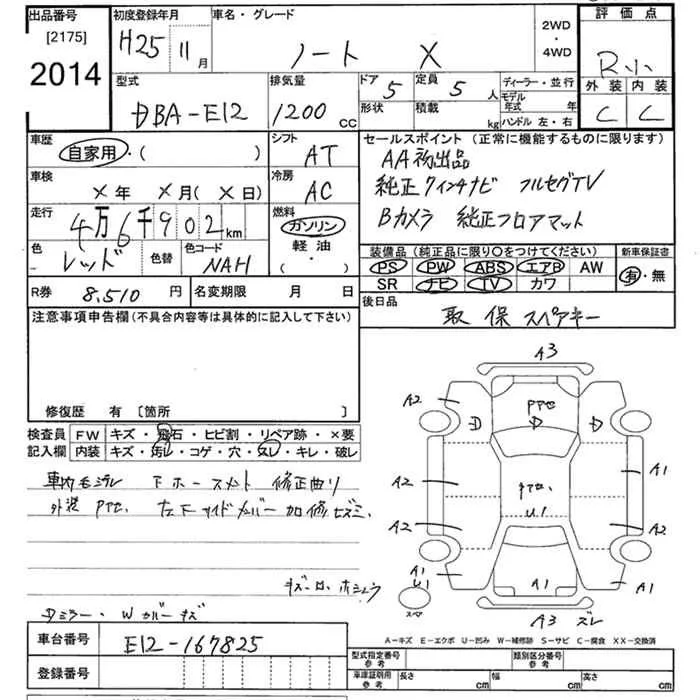 出品番号
[2175]
2014
初度登録年月
H25 11月
車名・グレード
ノート X
2WD
・
4WD
評価点
R小
外装 内装
C C
型式
DBA-E12
排気量
1200 CC
ドア 5
定員 5 人
形状
積載 kg
ディーラー・並行
モデル年式 年
ハンドル 左・右
車歴
自家用・( )
シフト
AT
車検
×年 ×月(×日)
冷房
AC
走行
4万6千902km
燃料
ガソリン
軽油・
( ・ )
色
レッド
色替
色コード
NAH
セールスポイント (正常に機能するものに限ります)
AA初出品
純正7インチナビ フルセグTV
Bカメラ 純正フロアマット
装備品 (純正品に限り○をつけてください)
PS PW ABS エアB AW
SR ナビ TV カワ
新車保証書
有・無
R券 8,510 円
名変期限 月 日
後日品
取 保 スペアキー
注意事項申告欄 (不具合内容等は具体的に記入して下さい)
修復歴 有 [箇所 ]
検査員
記入欄
FW キズ・飛石・ヒビ割・リペア跡・×要
内装 キズ・汚れ・コゲ・穴・スレ・キレ・破レ
車内モヂレ 下ホースメント 修正曲り
外装 Pアセ、 左下サイドメンバー加修
Dミラー・Wカバーキズ
A3
A2
Pアセ
D D D
A2 A1
Pアセ、
U1
A2 A2
A1
U1
A1 A1 A1
スペア
A3 ズレ
A-キズ E-エクボ U-凹み W-補修跡 S-サビ C-腐食 XX-交換済
車台番号
E12-167825
登録番号
型式指定番号
参考
類別区分番号
参考
車庫証明用
参考
長さ cm 幅 cm 高さ cm